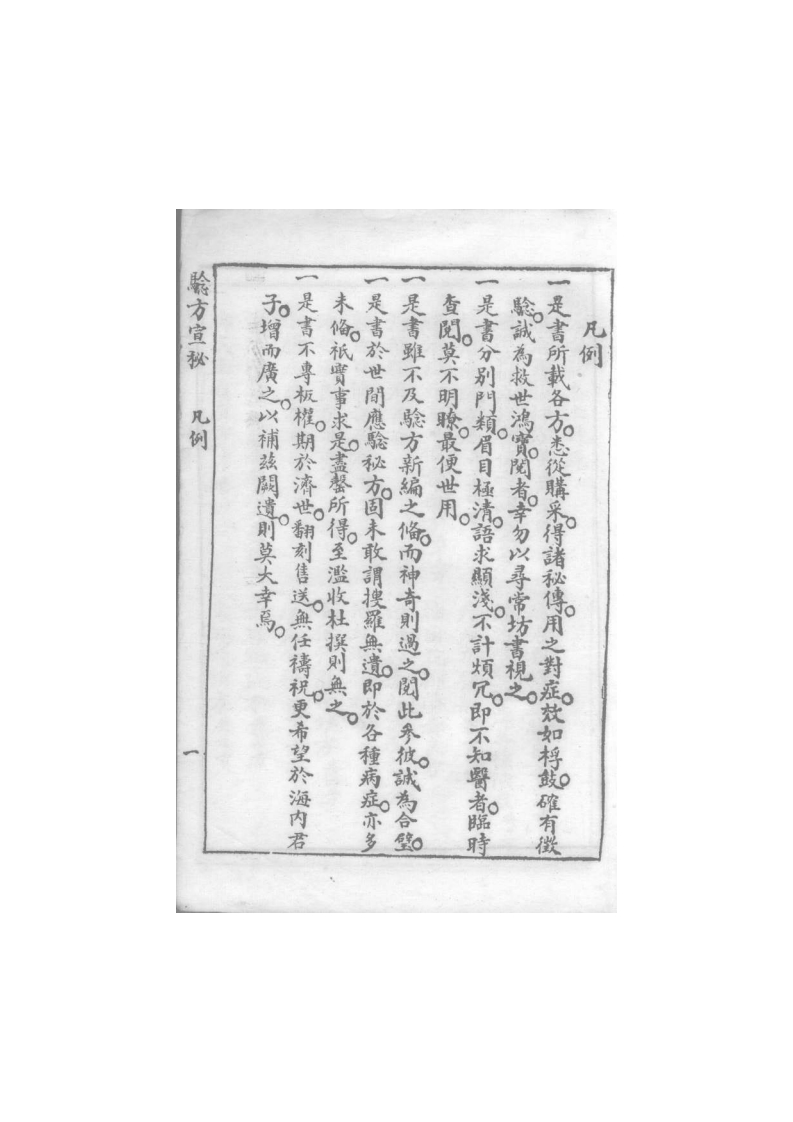 凡例
一是書所載各方。悉從購采。得諸秘傳。用之對症。效如桴鼓。確有徵
驗。誠為救世鴻寶。閱者。幸勿以尋常坊書視之。
一是書分別門類。眉目極清。語求顯淺。不計煩冗。即不知醫者。臨時
查閱。莫不明瞭。最便世用。
一是書雖不及驗方新編之偹。而神奇則過之。閱此參彼。誠為合璧。
一是書於世間應驗秘方。固未敢謂搜羅無遺。即於各種病症。亦多
未偹。祇實事求是。盡罄所得。至濫收杜撰則無之。
一是書不專板權。期於濟世。翻刻售送。無任禱祝。更希望於海內君
子。增而廣之。以補茲闕遺。則莫大幸焉。
驗方宣秘 凡例 一